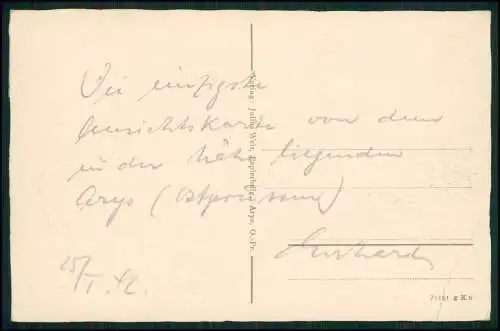 Die einzigste
Ansichtskarte von dem
in der Nähe liegenden
Arys (Ostpreussen)
Gerhard
25/I. 42.
Verlag: Julius Witt, Arys, O.-Pr.